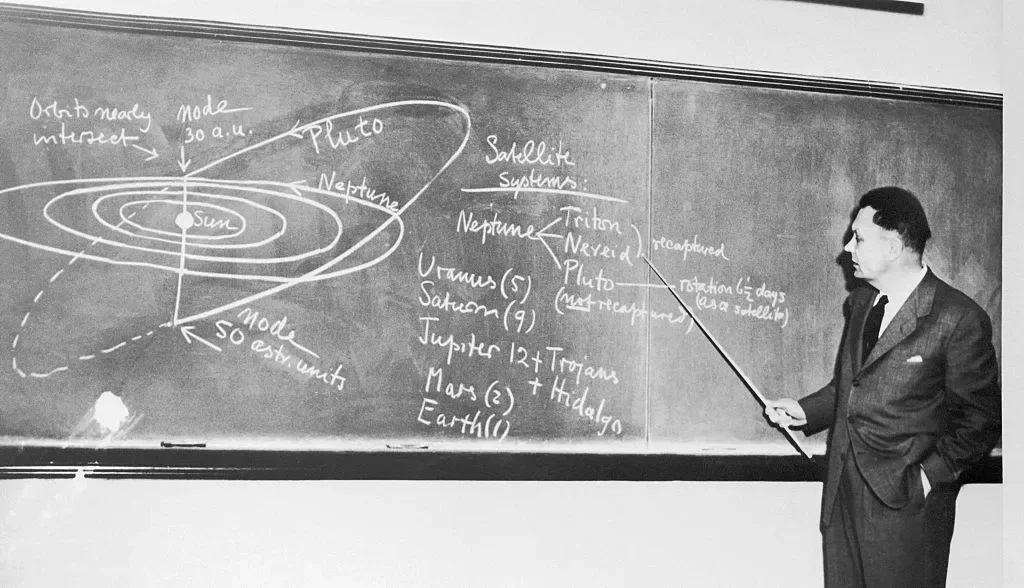 Orbits nearly
intersect
node
30 a.u.
Pluto
Neptune
Sun
node
50 astr. units
Satellite
Systems:
Neptune
Triton
Nereid
recaptured
Pluto
rotation 6½ days
(as a satellite)
(not recaptured)
Uranus (5)
Saturn (9)
Jupiter 12 + Trojans
+ Hidalgo
Mars (2)
Earth (1)